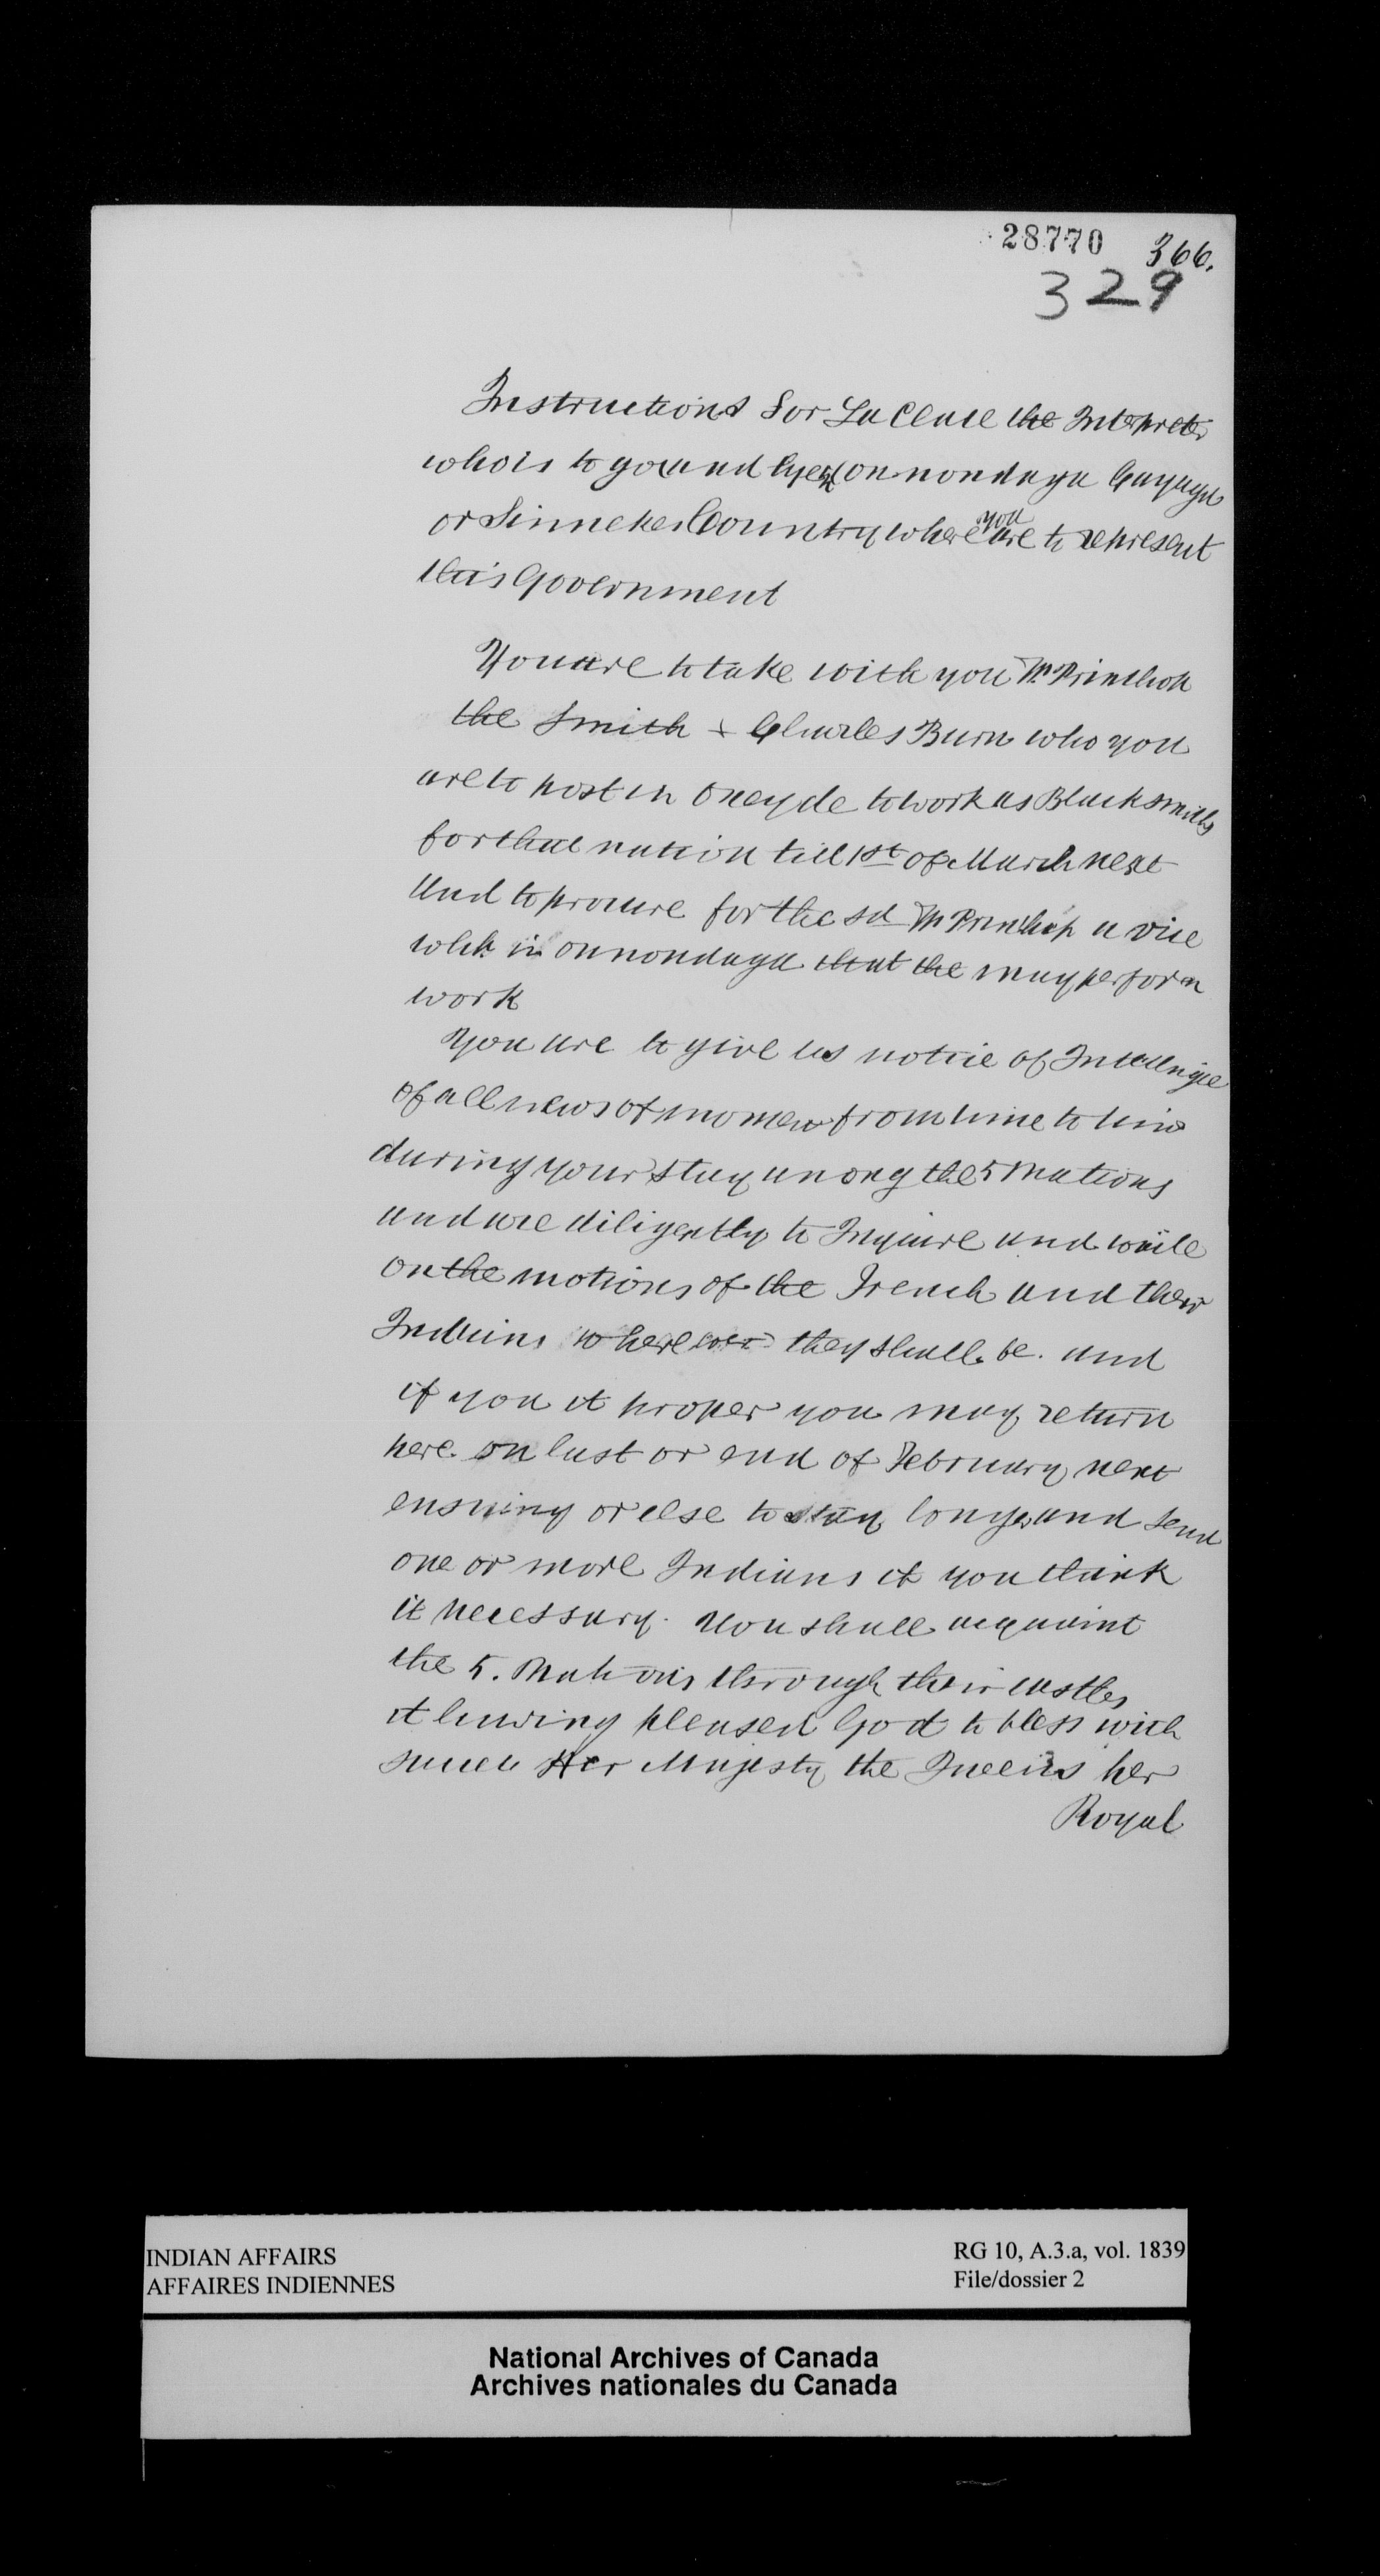 28770 366.
329
Instructions for La Cleue the Interpreter
who is to go and lye in onnondaga Cayuga
or Sinnekes Country where you are to represent
this Government
You are to take with you Mr Printhop
the Smith & Charles Burn who you
are to post in Oneyde to work as Blacksmiths
for that nation till 1st of March next
And to procure for the sd Mr Printhop a vice
wch is in onnondaga that he may perform
work
You are to give us notice of Intelligce
of all news of momen from time to time
during your stay among the 5 Nations
and are diligently to Inquire and write
on the motions of the French and their
Indians where they shall be. and
if you it proper you may return
here on last or end of February next
ensuing or else to stay longer and send
one or more Indians if you think
it necessary. You shall acquaint
the 5. Nations through their castles
it having pleased God to bless with
succe Her Majesty the Queens her
Royal
INDIAN AFFAIRS
AFFAIRES INDIENNES
RG 10, A.3.a, vol. 1839
File/dossier 2
National Archives of Canada
Archives nationales du Canada